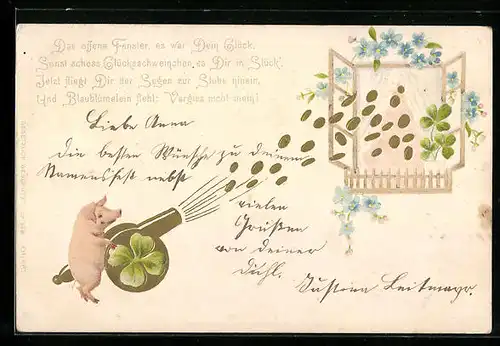 Das offene Fenster, es war Dein Glück,
Sonst schoss Glücksschweinchen es Dir in Stück!
Jetzt fliegt Dir der Segen zur Stube hinein,
Und Blaublümelein fleht: Vergiss mein nicht!
Liebe Anna
die besten Wünsche zu deinem
Namensfest nebst
vielen
Grüßen
von deiner
Justina Leitmayr.